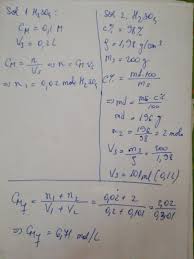 Sol 1 H₂SO₄:
C_M = 0,1 M
V_S = 0,2 L
C_M = n/V_S => n = C_M · V_S
=> n₁ = 0,02 mol H₂SO₄
Sol 2. H₂SO₄
C% = 98%
ρ = 1,98 g/cm³
m_s = 200 g
C% = md·100/m_s
=> md = m_s·C%/100
=> md = 196 g
n₂ = 196/98 = 2 mol
V_S = m_s/ρ = 200/1,98
V_S = 101 ml (0,1 L)
C_Mf = n₁ + n₂/V₁ + V₂ = 0,02 + 2/0,2 + 0,101 = 2,02/0,301
=> C_Mf = 6,71 mol/L